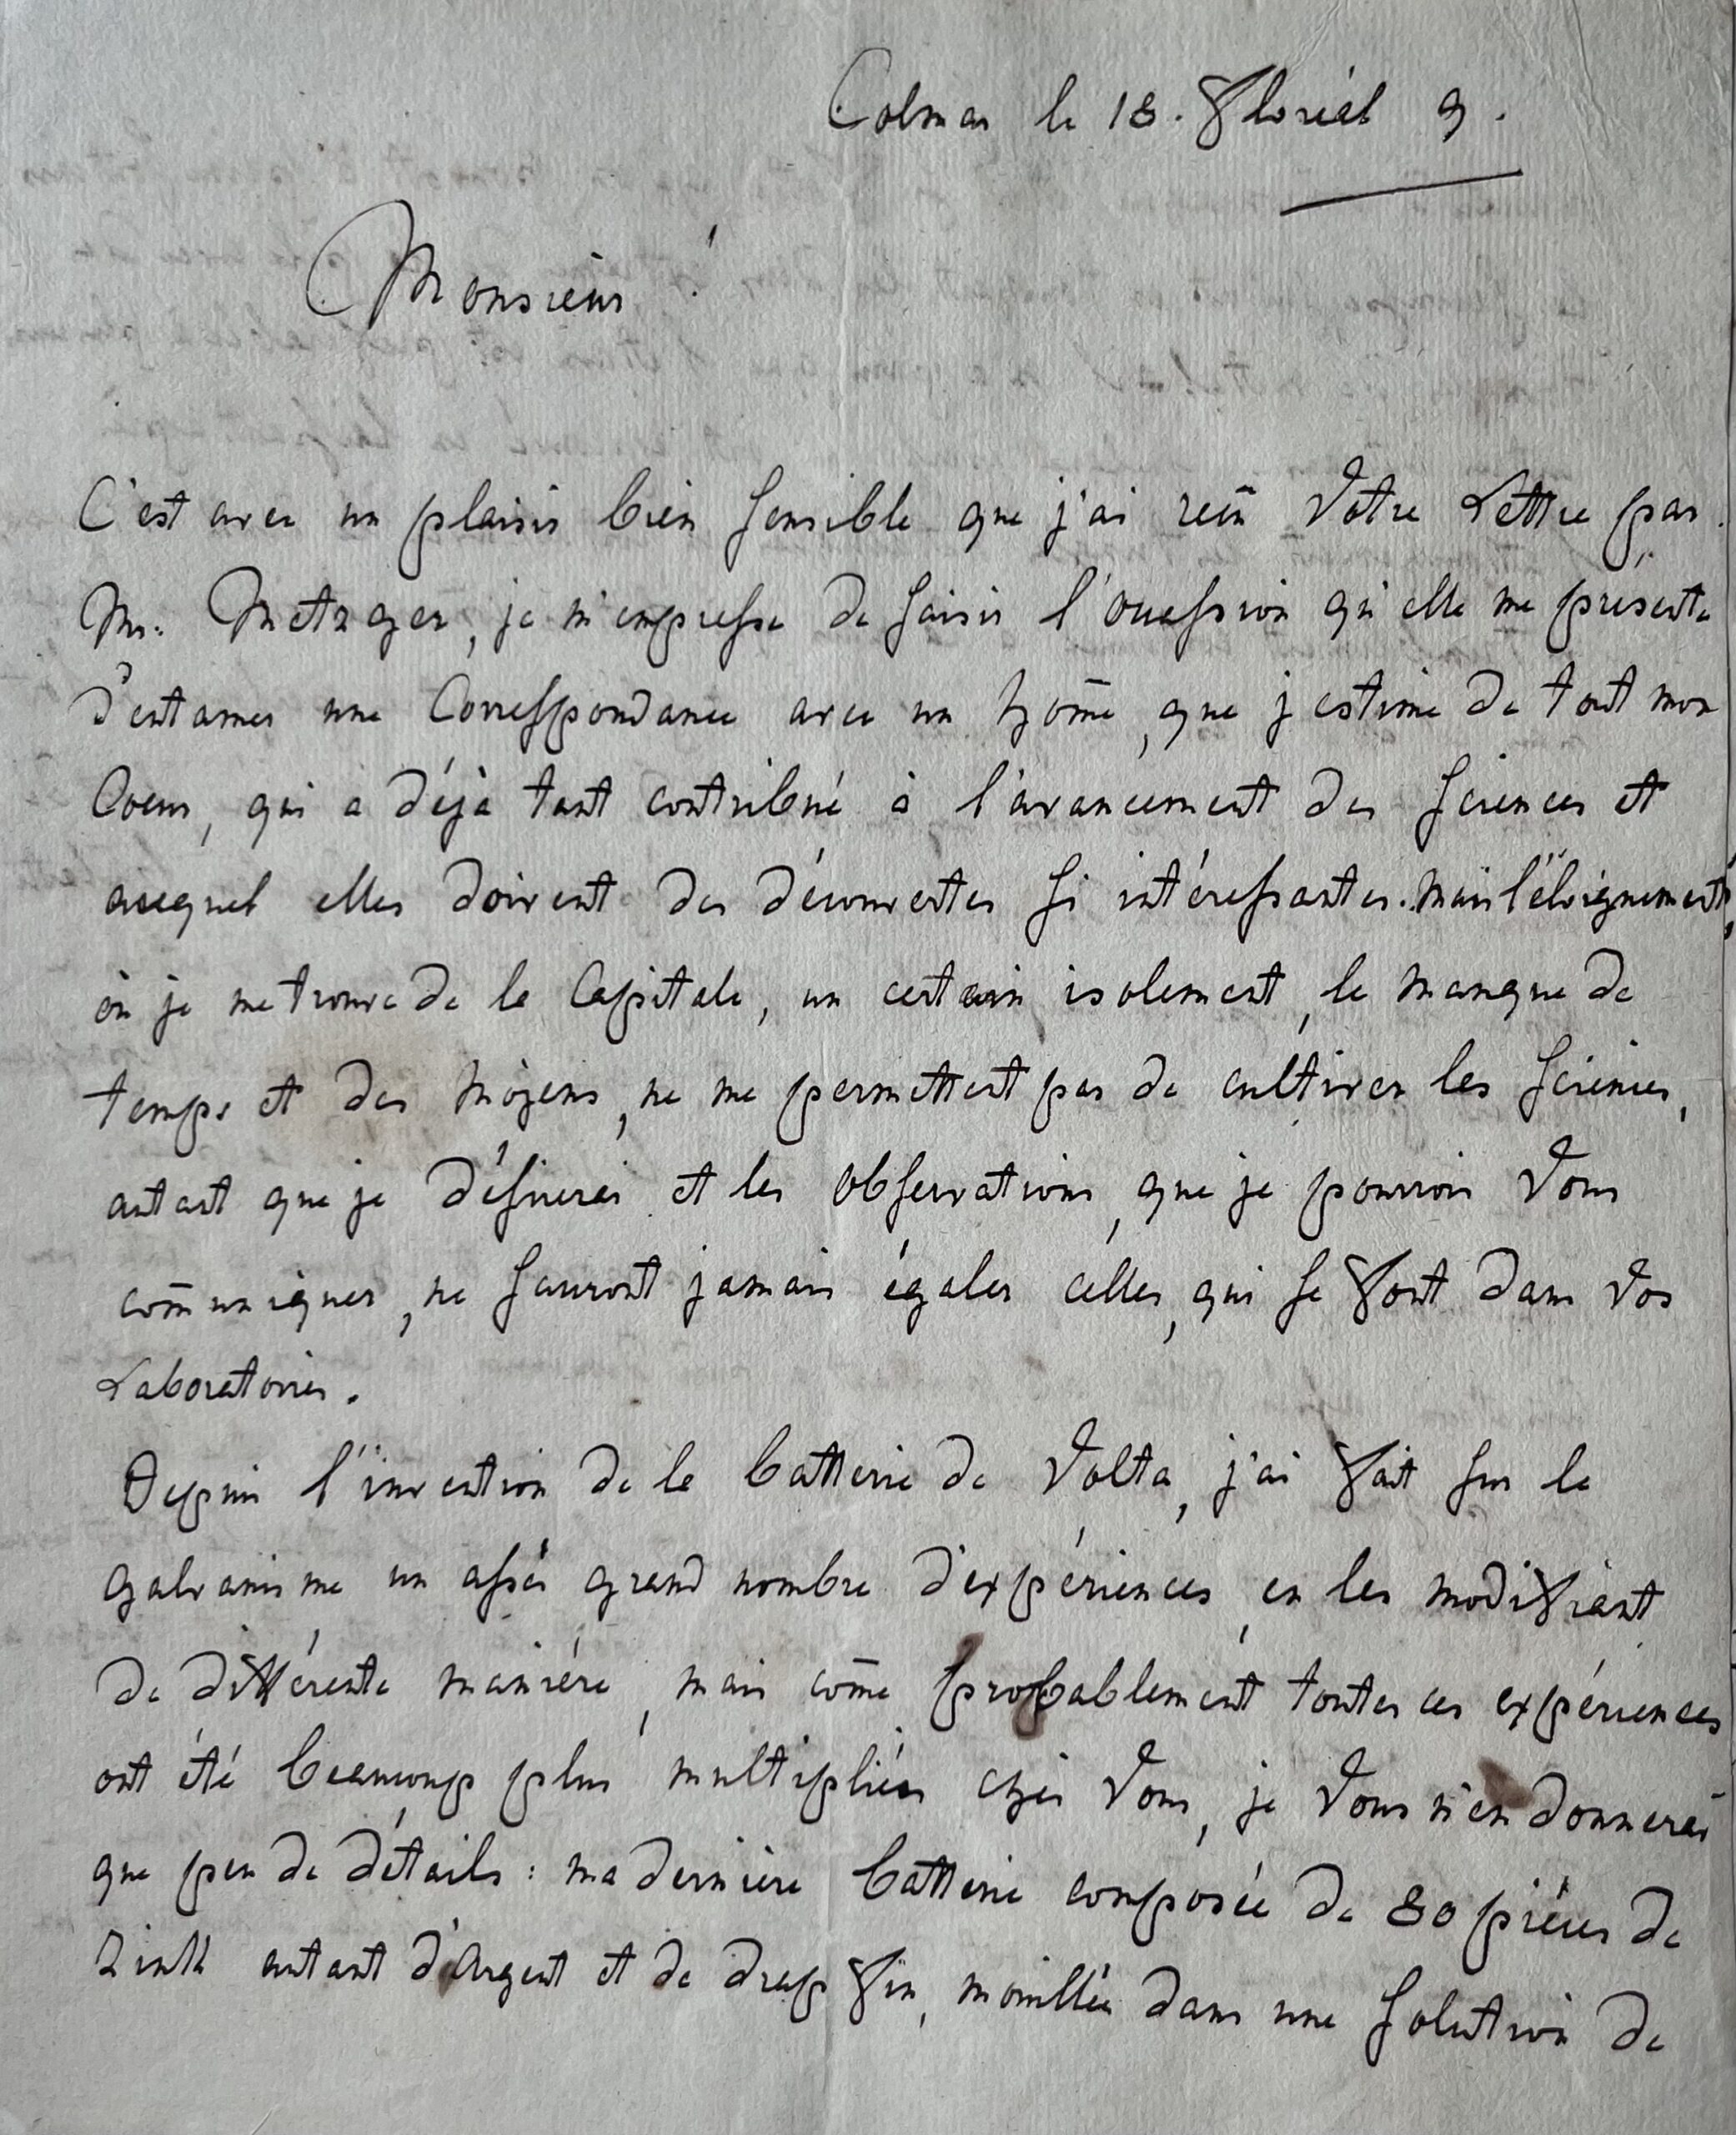 Colmar le 18. Floréal 9.
Monsieur !
C'est avec un plaisir bien sensible que j'ai reçu Votre Lettre par
Mr. Metzger, je m'empresse de saisir l'occassion qu'elle me présente
d'entamer une Correspondance avec un hōme, que j'estime de tout mon
Coeur, qui a déjà tant contribué à l'avancement des sciences et
auquel elles doivent des découvertes si intéressantes. Mais l'éloignement,
où je me trouve de la Capitale, un certain isolement, le manque de
temps et des moÿens, ne me permettent pas de cultiver les sciences,
autant que je désirerai et les observations, que je pourrois Vous
com̄uniquer, ne sauront jamais égaler celles, qui se font dans Vos
Laboratoires.
Depuis l'invention de la batterie de Volta, j'ai fait sur le
galvanisme un assés grand nombre d'expériences, en les modifiant
de différente manière, mais com̄e probablement toutes ces expériences
ont été beaucoup plus multipliées chés Vous, je Vous n'en donnerai
que peu de détails : ma dernière batterie composée de 80 pièces de
Zink autant d'Argent et de drap fin, mouillée dans une solution de